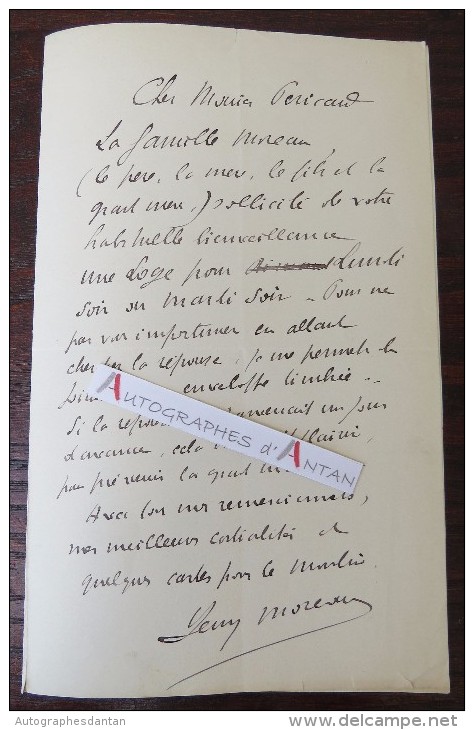 Cher Monsieur Pericaud
La famille Moreau,
(le père, la mere, le fils et la
grand mere,) sollicite de votre
habituelle bienveillance
une Loge pour Lundi
soir ou mardi soir. Pour ne
pas vous importuner en allant
chercher la reponse, je me permets de
enveloppe timbrée..
Si la repon parvenait un jour
d'avance, cela
pour prévenir la grand
Avec tous mes remerciements,
mes meilleures cordialités et
quelques cartes pour le moulin.
Moreau
AUTOGRAPHES d'ANTAN
Autographesdantan
www.delcampe.net